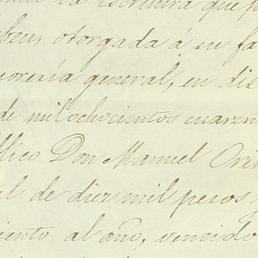 la escritura que p
otorgada á su fa
general, en die
de mil ochocientos cuaren
blico Don Manuel Ori
al de diez mil pesos
iento al año, vencido